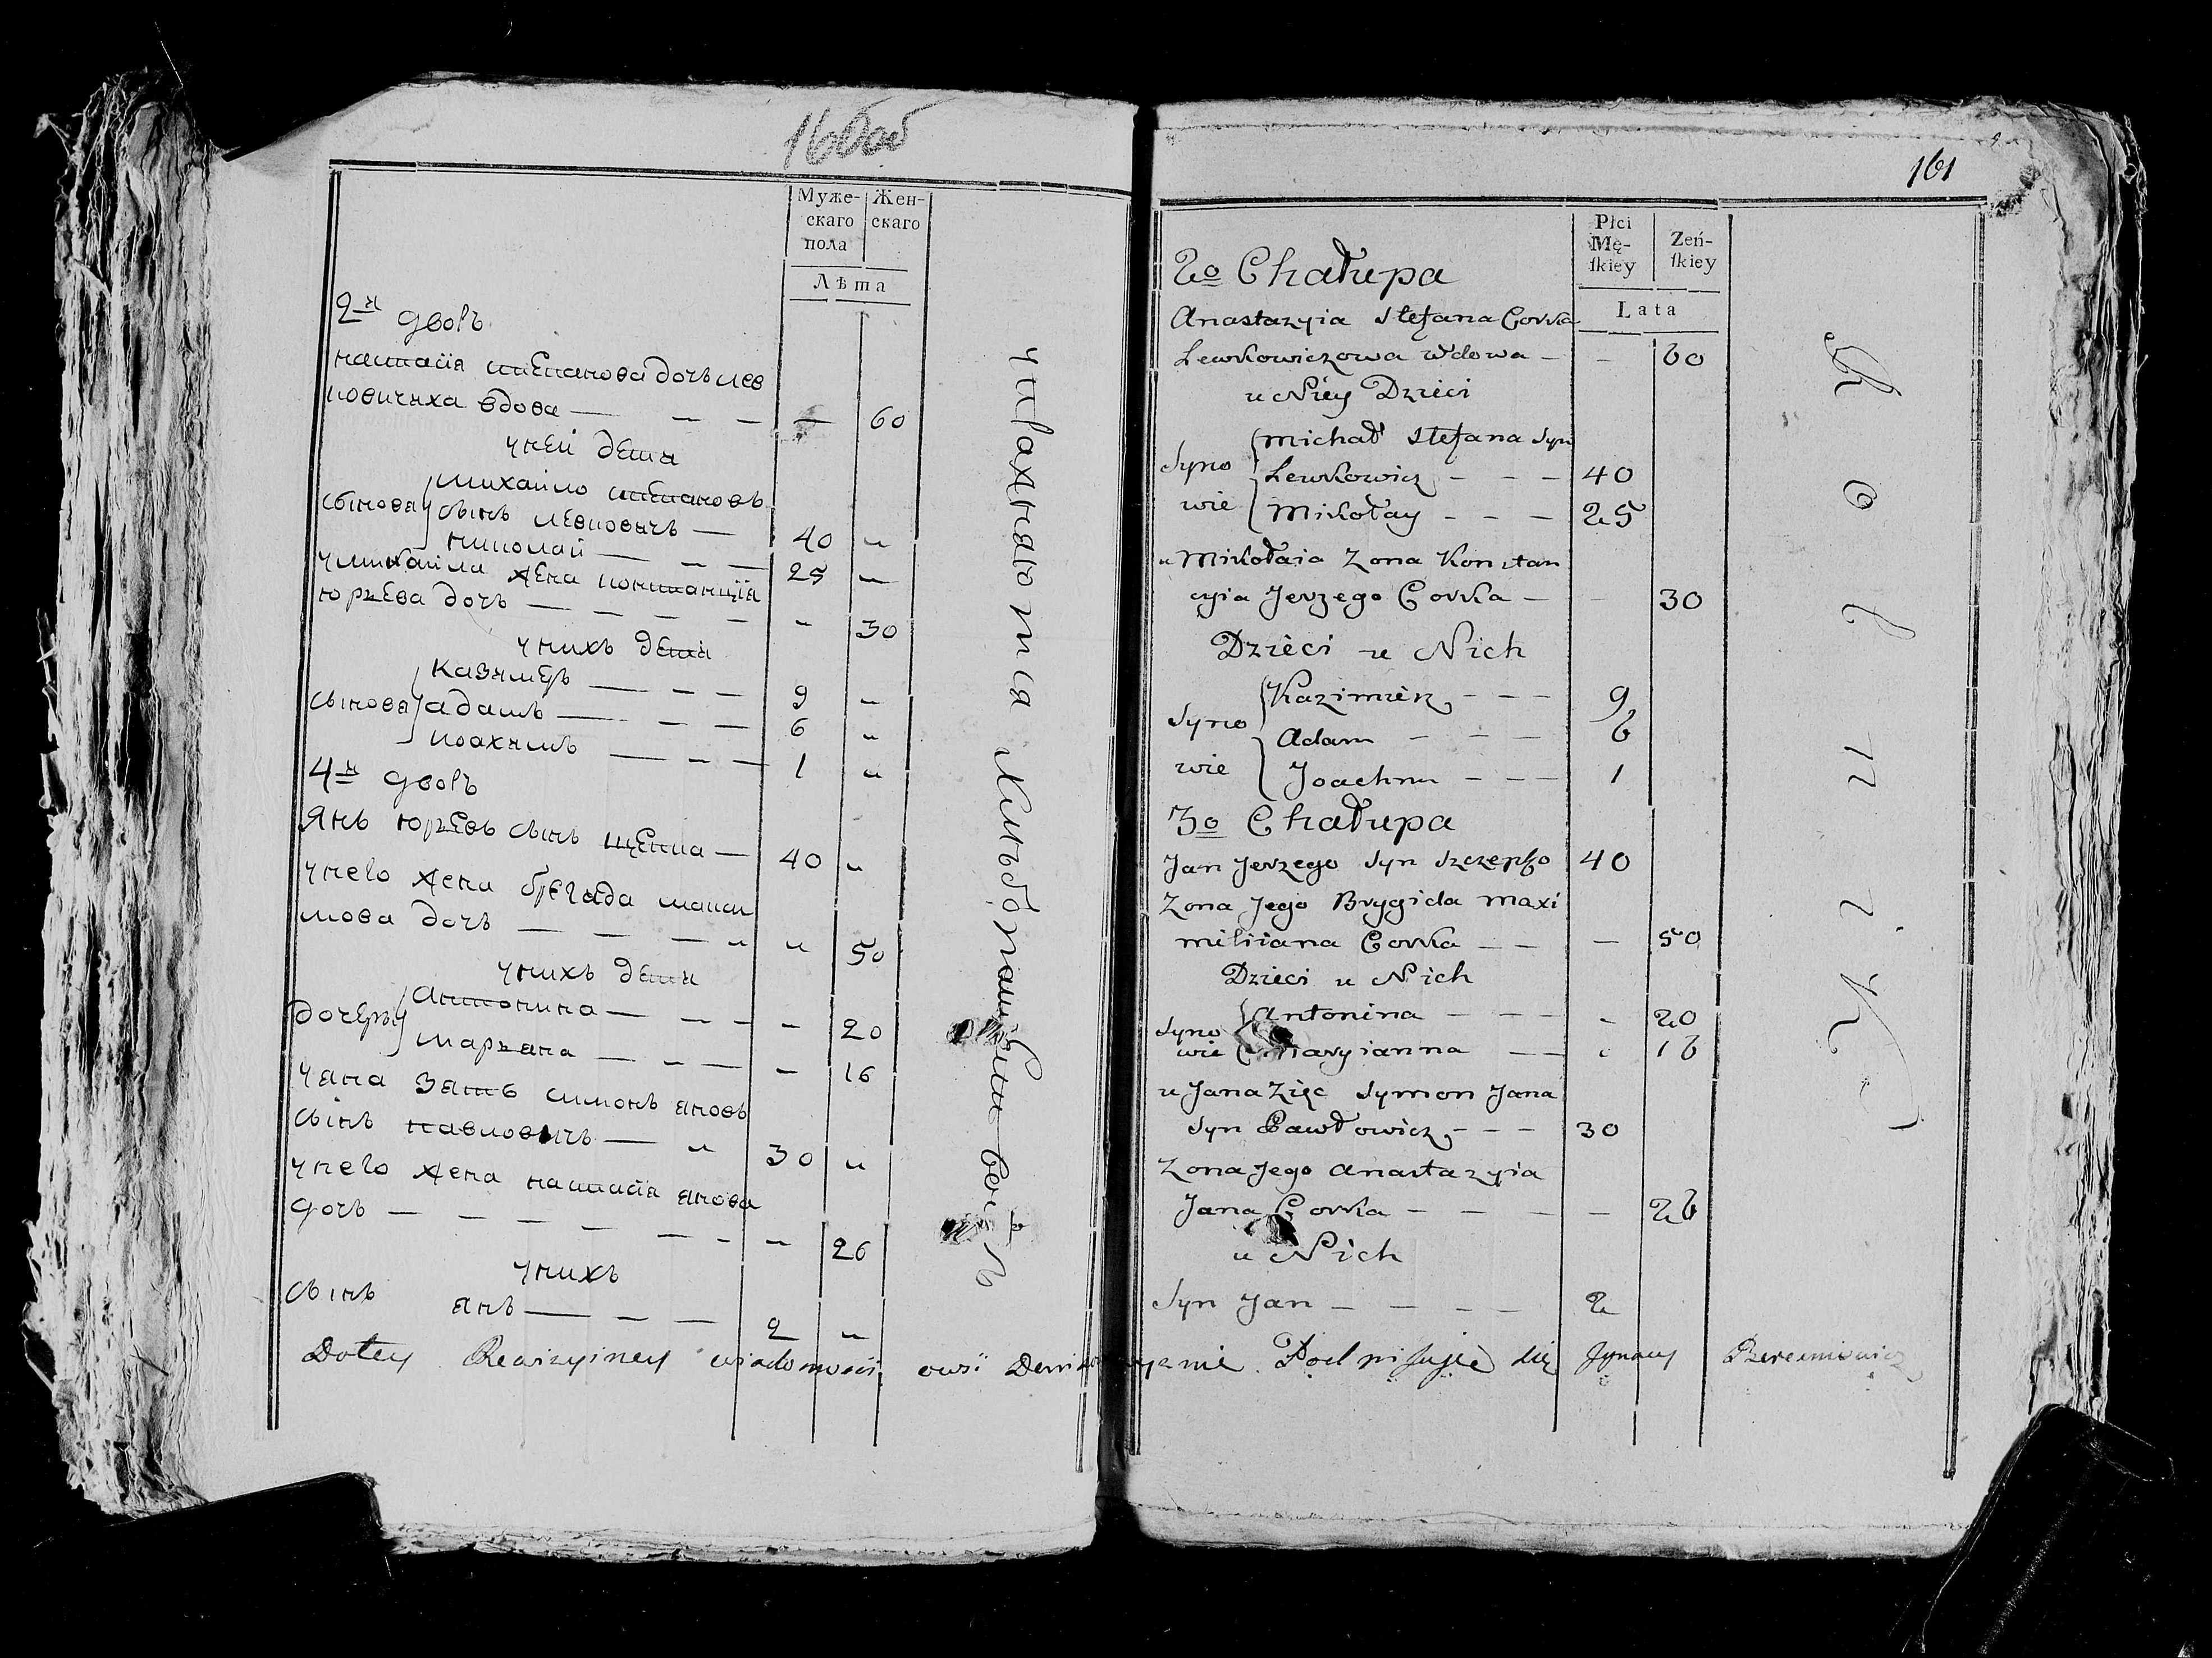 160 об
Муже-
скаго
пола
Жен-
скаго
Лѣта
2я дворъ
настасія степанова дочь лев
ковичиха вдова — — — — 60
у ней дети
михайло степановъ
сынова сынъ левковичъ — 40 "
николай — — — 25 "
у михайла жена констанція
юрьева дочь — — — — " 30
у нихъ дети
казимеръ — — — 9 "
сынова адамъ — — — 6 "
иоахимъ — — — 1 "
4я дворъ
Янъ юрьевъ сынъ щепка — 40 "
у него жена брегида макси
мова дочь — — — " " 50
у нихъ дети
антонина — — — — 20
дочеры марьяна — — — — 16
у яна зать симонъ яновъ
сынъ павловичъ — " 30 "
у него жена настасія янова
дочь — — — — — — " 26
у нихъ
сынъ янъ — — — 2 "
161
Płci
Mę-
skiey
Zeń-
skiey
Lata
2o Chałupa
Anastazyia Stefana Corka
Lewkowiczowa wdowa — — 60
u Niey Dzieci
michał Stefana Syn
Syno Lewkowicz — — — 40
wie Mikołay — — — 25
u Mikołaia Zona Konstan
cyia Jerzego Corka — — 30
Dzieci u Nich
Kazimierz — — — 9
Syno Adam — — — 6
wie Joachim — — — 1
3o Chałupa
Jan Jerzego Syn Szczepko 40
Zona Jego Brygida maxi
miliiana Corka — — — 50
Dzieci u Nich
Antonina — — — - 20
Syno
wie maryianna — — 16
u Jana Zięc Symon Jana
Syn Pawłowicz — — — 30
Zona Jego Anastazyia
Jana Corka — — — — — 26
u Nich
Syn Jan — — — — 2
Dotey Rewizyiney wiadomości Podpisuję się Jgnacy